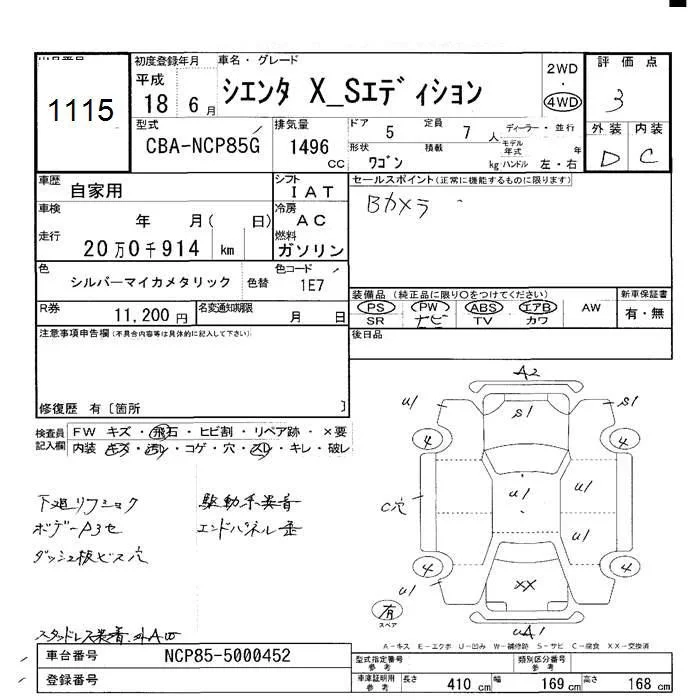 出品番号 初度登録年月 車名・グレード 評価点
1115 平成 18 6月 シエンタ X_Sエディション 2WD・4WD 3
型式 排気量 ドア 定員 ディーラー・並行 外装 内装
CBA-NCP85G 1496 cc 5 7人 モデル年式 年 D C
形状 積載 ワゴン kg ハンドル 左・右
車歴 自家用 シフト IAT セールスポイント(正常に機能するものに限ります)
車検 年 月( 日) 冷房 AC Bカメラ
走行 20万0千914 km 燃料 ガソリン
色 シルバーマイカメタリック 色替 色コード 1E7
装備品(純正品に限り○をつけてください) 新車保証書
R券 11,200円 名変通知期限 月 日 PS・PW・ABS・エアB AW 有・無
SR ナビ TV カワ
注意事項申告欄(不具合内容等は具体的に記入して下さい) 後日品
修復歴 有〔箇所 〕
検査員記入欄 FW キズ・飛石・ヒビ割・リペア跡・×要
内装 キズ・汚れ・コゲ・穴・スレ・キレ・破レ
A2
U1 S1 S1
4 4
C穴 U1 U1
U1
4 4
U1 XX U1
有 スペア UA1
ボデーA3セ エンドパネル歪
ダッシュ板ビス穴
A-キズ E-エクボ U-凹み W-補修跡 S-サビ C-腐食 XX-交換済
車台番号 NCP85-5000452 型式指定番号 参考 類別区分番号 参考
登録番号 車庫証明用 参考 長さ 410 cm 幅 169 cm 高さ 168 cm